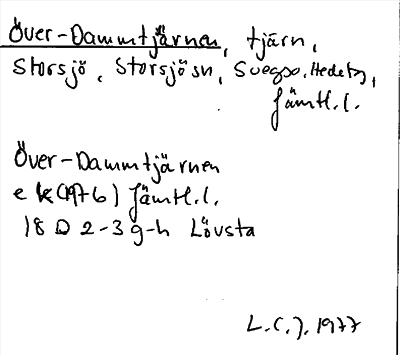 Över-Dammtjärnen, tjärn,
Storsjö, Storsjö sn, Svegs
Jämtl.l.
Över-Dammtjärnen
e k (1976) Jämtl.l.
18 D 2-3 g-h Lövsta
L.C.J. 1977